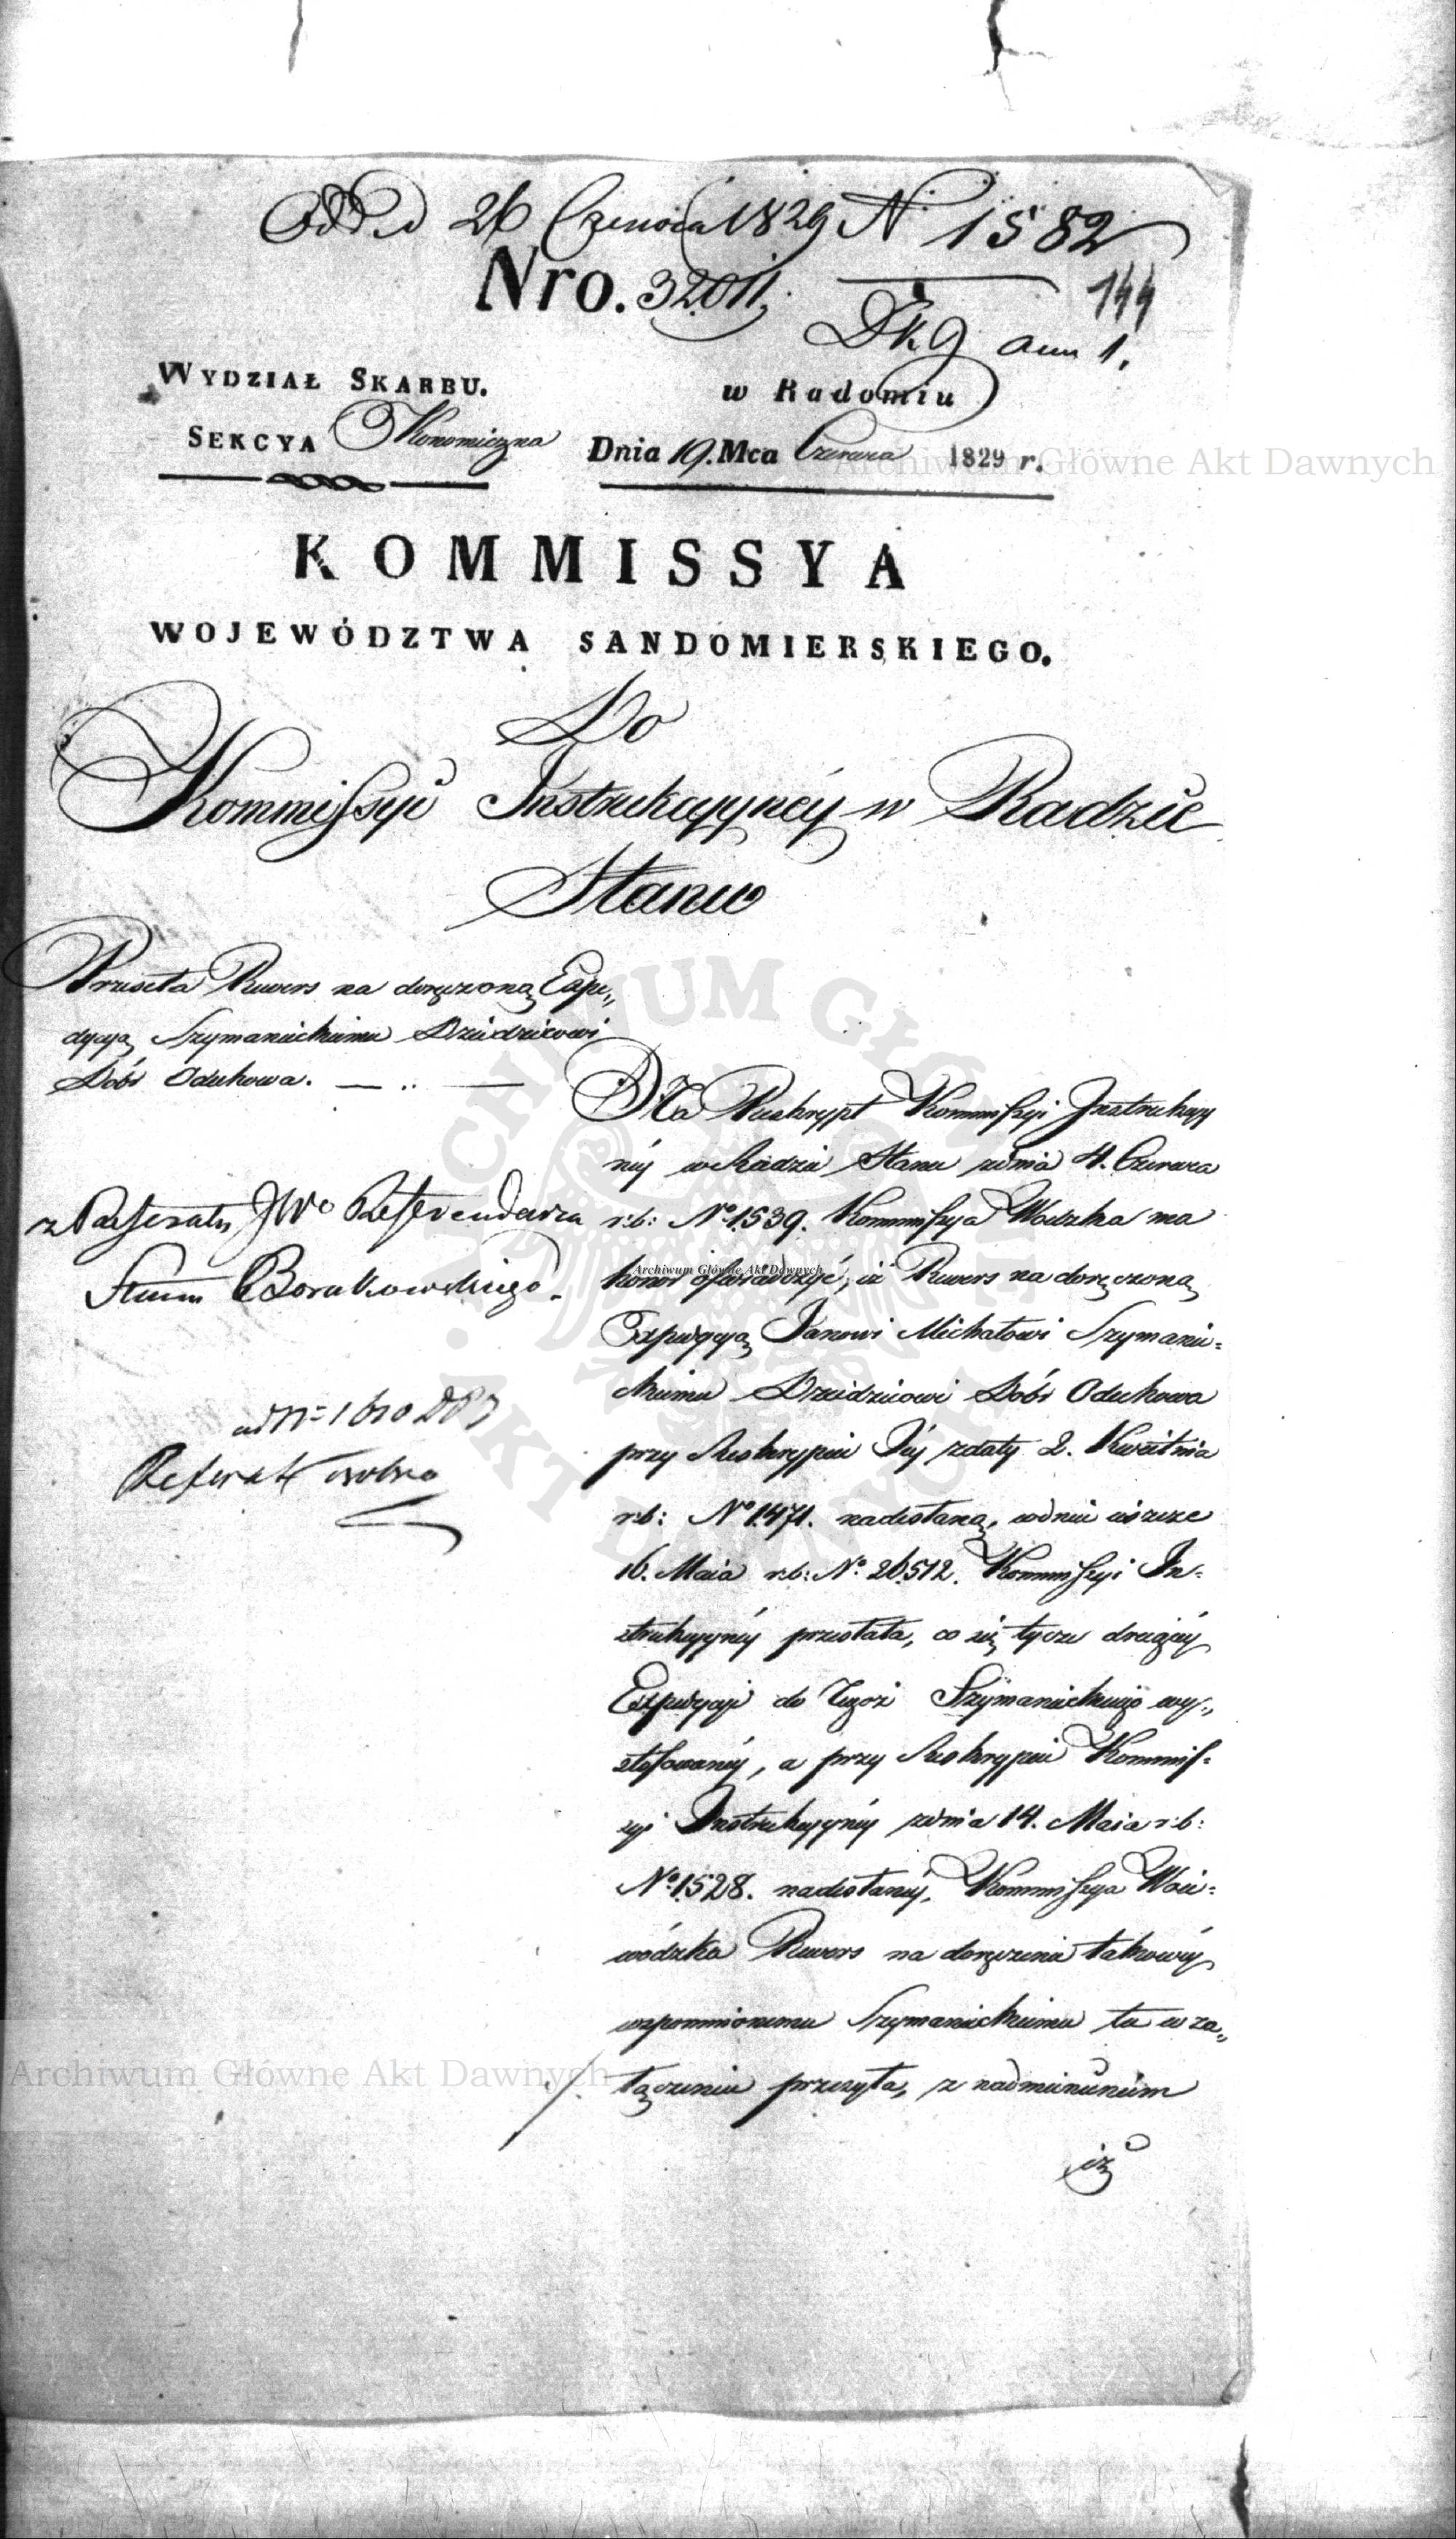 Odd. d 26 Czerwca 1829 N 1582
Nro. 32011.
144
Dk 9 ann 1.
WYDZIAŁ SKARBU.
w Radomiu
SEKCYA Ekonomiczna
Dnia 19. Mca Czerwca 1829 r.
KOMMISSYA
WOJEWÓDZTWA SANDOMIERSKIEGO.
Do
Kommissyi Instrukcyyney w Radzie
Stanu
Przesyła Rewers na doręczoną Expe„
dycyą Szymanieckiemu Dziedzicowi
Dóbr Odechowa. — .. —
z Referatu JWo Referendarza
Stanu Borakowskiego.
ad N= 1610 DPJ
Referat osobno
Na Reskrypt Kommissyi Instrukcyy
néy w Radzie Stanu z dnia 4. Czerwca
r:b: No 1539. Kommissya Wodzka ma
honor oświadczyć, iż Rewers na doręczoną
Expedycyą Janowi Michałowi Szymanie=
ckiemu Dziedzicowi Dóbr Odechowa
przy Reskrypcie Jéy z daty 2. Kwietnia
r:b: No 1471. nadesłaną, w dniu
16. Maia r:b: No 26512. Kommissyi In=
strukcyynéy przesłała, co się tycze drugiéy
Expedycyi do Tegoż Szymanieckiego wy„
stosowanéy, a przy Reskrypcie Kommis=
syi Instrukcyynéy z dnia 14. Maia r:b:
No 1528. nadesłanéy, Kommissya Woie=
wódzka Rewers na doręczenie takowéy
wspomnionemu Szymanieckiemu tu w za„
łączeniu przesyła, z nadmienieniem
iż
Archiwum Główne Akt Dawnych
Archiwum Główne Akt Dawnych
Archiwum Główne Akt Dawnych
ARCHIWUM GŁÓWNE AKT DAWNYCH